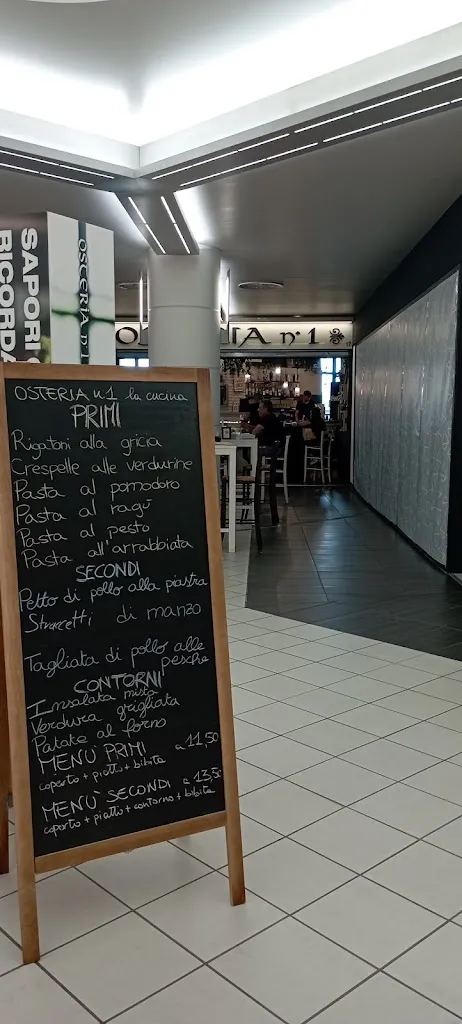 SAPORI
RICORDA
OSTERIA n°1
IA n°1
OSTERIA n.1 la cucina
PRIMI
Rigatoni alla gricia
Crespelle alle verdurine
Pasta al pomodoro
Pasta al ragù
Pasta al pesto
Pasta all'arrabbiata
SECONDI
Petto di pollo alla piastra
Straccetti di manzo
Tagliata di pollo alle
pesche
CONTORNI
Insalata mista
Verdura grigliata
Patate al forno
MENÙ PRIMI a 11,50
coperto + piatto + bibita
MENÙ SECONDI a 13,50
coperto + piatto + contorno + bibita